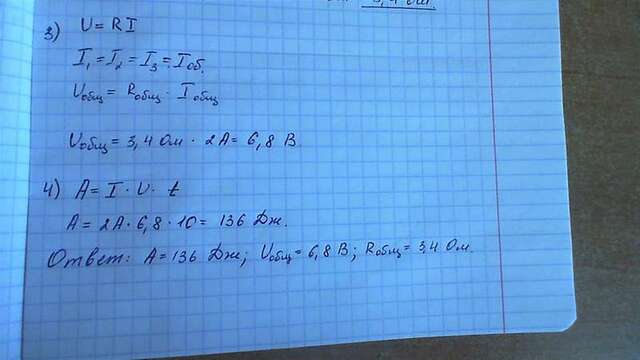 3,4 Ом.
3) U = R I
I₁ = I₂ = I₃ = Iоб.
Uобщ = Rобщ · Iобщ
Uобщ = 3,4 Ом · 2A = 6,8 В
4) A = I · U · t
A = 2A · 6,8 · 10 = 136 Дж.
Ответ: A = 136 Дж; Uобщ = 6,8 В; Rобщ = 3,4 Ом.